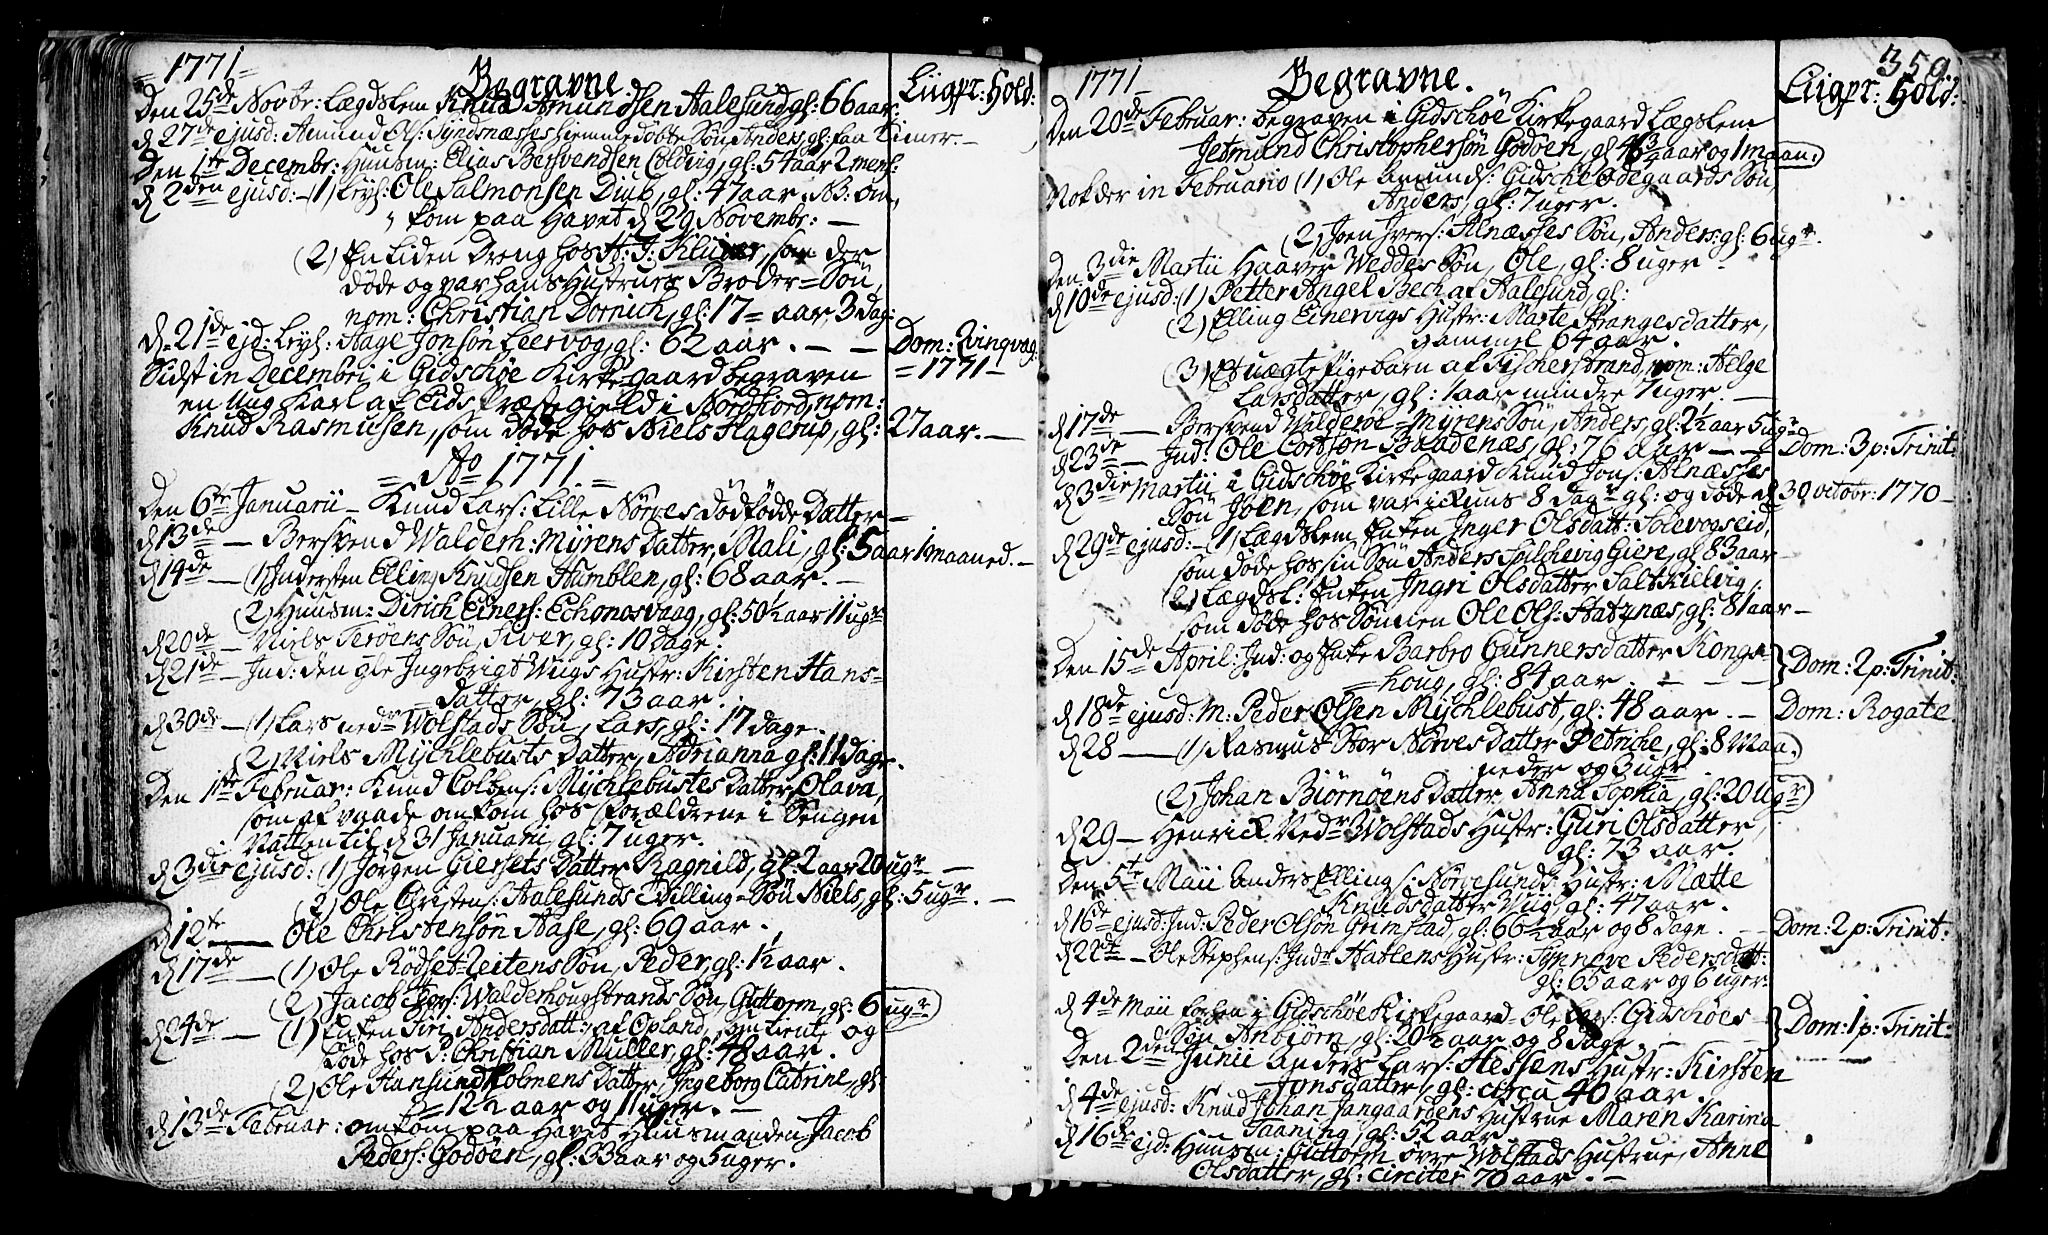 = 1771 =
Begravne.
Liigpr: Hold:
Den 25de Novbr: Lægdslem Knud Amundsen Aalesund gl: 66 aar.
d 27de ejusd: Amund Ols: Syndnæsses hiemmedøbte Søn Anders, gl: faa timer. –
Den 1te Decembr: Huusm: Elias Bersvendsen Colvig, gl: 54 aar 2 men:
d 2den ejusd: – (1) Lejl: Ole Salmonsen Diub, gl: 47 aar NB: om,
kom paa Havet d 29 Novembr: –
(2) En liden Dreng hos H: J: som der
døde og var hans Hustrues Broder=Søn,
nom: Christian Dornich, gl: 17 = aar, 3 dag:
d 21de ejd: Lejl: Aage Jonsøn Leervog, gl: 62 aar. – –
Dom: Qvinqvag:
= 1771 =
Sidst in Decembri i Gidschøe Kirke=gaard begraven
en Ung Karl af Eids Præstegield i Nordfiord, nom:
Knud Rasmusen, som døde hos Niels Hagerup, gl: 27 aar. –
= Ao 1771. =
Den 6te Januarii – Knud Lars: Lille Nørves dødfødde Datter –
d 13de – Bersvend Walderh: Myrens Datter, Mali, gl: 5 aar 1 maaned. –
d 14de – (1) Indersten Elling Knudsen Humblen, gl: 68 aar. –
(2) Huusm: Dirich Einers: Echonæsvaag, gl: 50½ aar 11 ugr
d 20de – Niels Terøens Søn, Siver, gl: 10 Dage.
d 21de – Ind: den gle Ingebrigt Wiigs Hustr: Kirsten Hans=
datter, gl: 73 aar.
d 30de – (1) Lars nedr Wolstads Søn, Lars, gl: 17 dage.
(2) Niels Mychlebusts Datter, Adrianna gl: 11 Dage.
Den 1te Februar: Knud Colbens: Mychlebustes Datter Olava,
som af vaade omkom hos Forældrene i Sengen
Natten til d 31 Januarii, gl: 7 uger.
d 3die ejusd: (1) Jørgen Giersets Datter Ragnild, gl: 2 aar 20 ugr –
(2) Ole Christens: Aalesunds Tvilling=Søn Niels, gl: 5 ugr. –
d 12te – Ole Christensøn Aase, gl: 69 aar.
d 17de – (1) Ole Rødset=Leitens Søn, Peder, gl: 1½ aar.
(2) Jacob Walderhougstrands Søn, Guttorm, gl: 6 ugr
d 24de – (1) Enken Siri Andersdatt: af Opland, som tiente og
døde hos S: Christian Muller, gl: 48 aar.
(2) Ole Hansundholmens Datter, Ingeborg Catrine, gl:
= 12½ aar og 11 uger. –
d 13de Februar: omkom paa Havet Huusmanden Jacob
Peders: Godøen, gl: 33 aar og 5 uger.
1771
Begravne.
359.
Liigpr: Hold:
Den 20de Februar: begraven i Gidschøe Kirkegaard Lægslem
Jetmund Christophersøn Godøen, gl: aar og 1 maan:
Nok der in Februario (1) Ole Amunds: Gidsche Ødegaards Søn,
Anders, gl: 7 uger.
(2) Joen Ivers: Alnæsses Søn, Anders: gl: 6 ugr.
Den 3die Martii Haaver Weddes Søn, Ole, gl: 8 uger –
d 10de ejusd: (1) Petter Angel Bech af Aalesund, gl:
(2) Elling Einervigs Hustr: Marte Strangesdatter,
gammel 64 aar.
(3) Et uægte Pigebarn af Fischerstrand, nom: Helge
Larsdatter, gl: 1 aar mindre 7 uger. –
d 17de – Bersvend Walderøe=Myrens Søn, Anders, gl: 2½ aar 5 ugr
d 23de – Ind: Ole Cortsøn Baadenæs, gl: 76 aar – –
Dom: 3 p: Trinit:
d 3die Martii i Gidschøe Kirkegaard Knud Jons: Alnæsses
Søn Joen, som var ickuns 8 Dagr gl: og døde d 30 Octobr: 1770 –
d 29de ejusd: – (1) Lægdslem Enken Inger Olsdatt: Solevogseid,
som døde hos sin Søn Anders Giere, gl: 83 aar –
(2) Lægdsl: Enken Ingri Olsdatter Saltkielvig,
som døde hos Sønnen Ole Ols: Hatznæs, gl: 81 aar –
Den 15de April: Ind: og Enke Barbro Gunnersdatter Kongs=
houg, gl: 84 aar. – – –
Dom: 2 p: Trinit:
d 18de ejusd: M: Peder Olsen Mychlebust, gl: 48 aar. –
Dom: Rogate
d 28 – (1) Rasmus Stor Nørves Datter Petriche, gl: 8 Maa,
neder og 3 ugr
(2) Johan Biørnøens Datter, Anna Sophia, gl: 20 ugr
d 29 – Henrick Nedr Wolstads Hustr: Guri Olsdatter,
gl: 73 aar.
Den 5te Maii Anders Ellings: Nørvesunds Hustr: Mætte
Knudsdatter Wiig, gl: 47 aar.
d 16de ejusd: Ind: Peder Olsøn Grimstad, gl: 66½ aar og 8 dage. – –
Dom: 2 p: Trinit:
d 22de – Ole Stephens: Indr Hatlens Hustr: Synneve Pedersdatt:
gl: 65 aar og 6 uger.
d 4de Maii forhen i Gidschøe Kirkegaard Ole Lars: Gidschøes –
Søn Anbiørn, gl: 20½ aar og 8 dage. –
Dom: 1 p: Trinit:
Den 2den Junii Anders Lars: Hessens Hustr: Kirsten
Jonsdatter, gl: circa 40 aar.
d 4de ejusd: Knud Johan Jangaardens Hustrue Maren Karina
Saaning, gl: 52 aar
d 16de ejd: Huusm: Guttorm øvre Wolstads Hustrue, Anne
Olsdatter, gl: circiter 70 aar. –